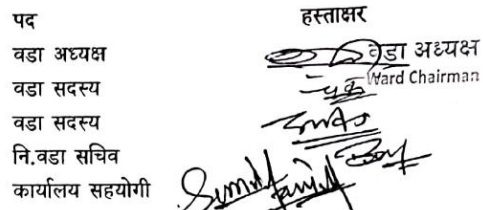 पद हस्ताक्षर
वडा अध्यक्ष वडा अध्यक्ष
Ward Chairman
वडा सदस्य
वडा सदस्य
नि.वडा सचिव
कार्यालय सहयोगी